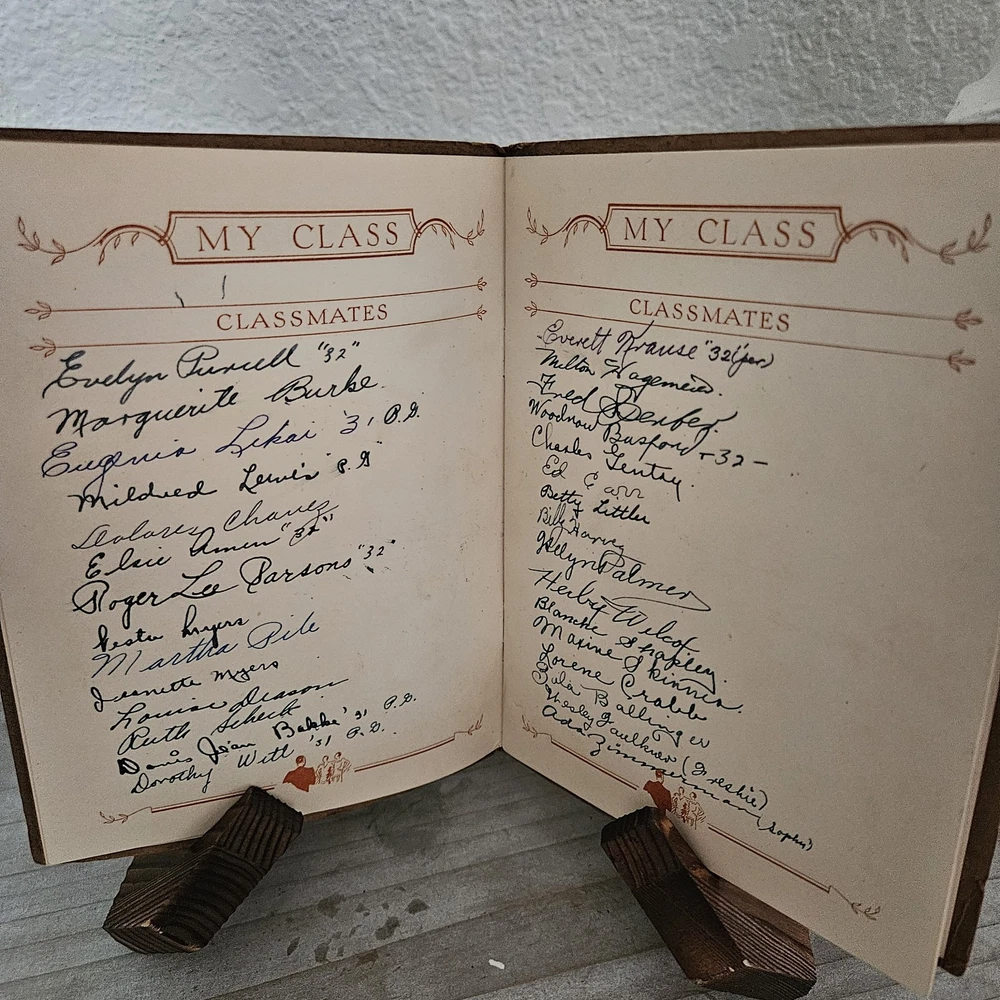 MY CLASS
CLASSMATES
Evelyn Purcell "32"
Marguerite Burke.
Eugenia Lekai '31 P.G.
Mildred Lewis P.G
Dolores Chavez
Elsie Amen "32"
Roger Lee Parsons "32"
Vesta Myers
Martha Pile
Jeanette Myers
Louise Deason
Ruth Scheck
Doris Jean Bakke '31 P.G.
Dorothy Witt '31 P.G.
MY CLASS
CLASSMATES
Everett Krause "32 (per)
Milton Hagemeier.
Fred
Woodrow Basford -32-
Charles Gentry.
Ed
Betty Littler
Bill Harvey
Helyn Palmer
Herby Wilcox
Blanche Shapley.
Maxine Skinner.
Lorene Crabb
Zula Ballinger
Wesley Faulkner (Freshie)
Ada Zimmerman (Soph)